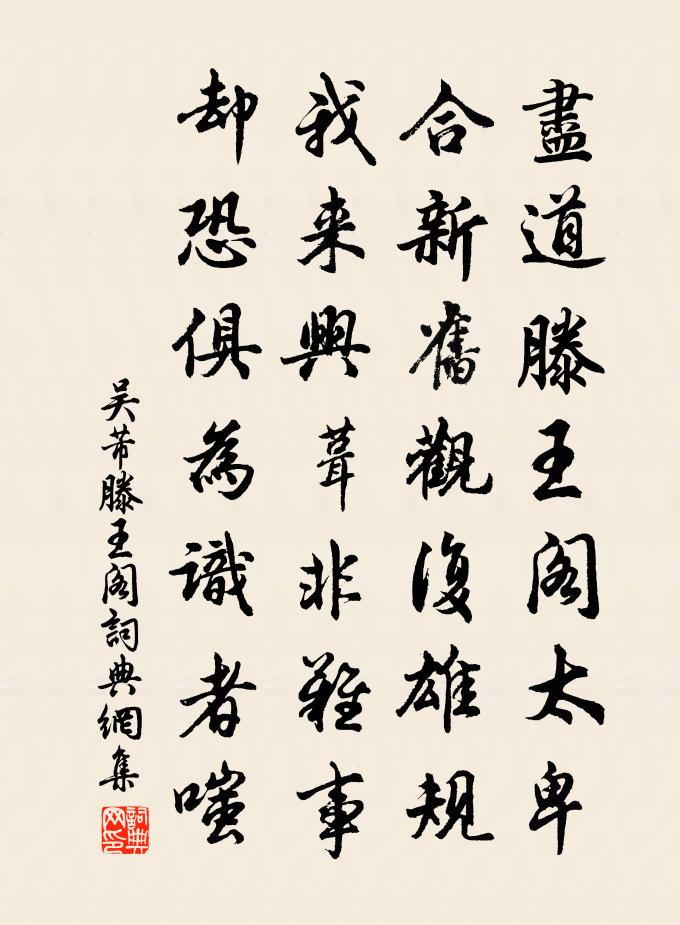 盡道滕王閣太卑
合新舊觀復雄規
我来興葺非難事
却恐俱為識者嗤
吴芾滕王阁詞典網集
詞典网印